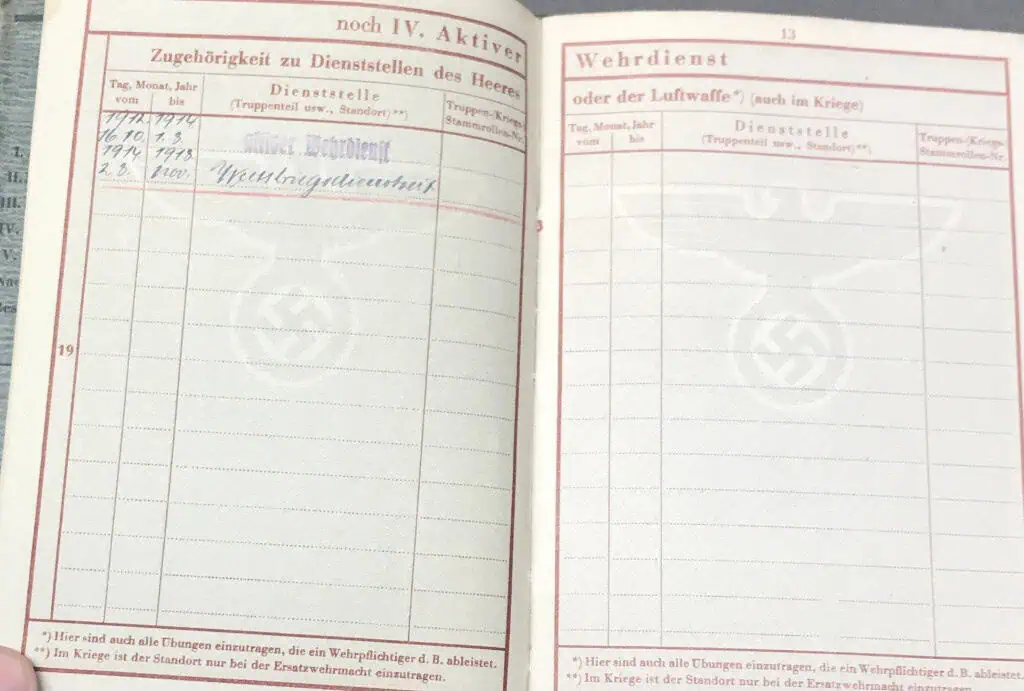 noch IV. Aktiver
Zugehörigkeit zu Dienststellen des Heeres
Tag, Monat, Jahr
vom bis
Dienststelle
(Truppenteil usw., Standort)**)
Truppen-/Kriegs-
Stammrollen-Nr.
1912 1914
16.10. 1.8
aktiver Wehrdienst
1914 1918
2.8. Nov.
Weltkriegsdienstzeit
19
*) Hier sind auch alle Übungen einzutragen, die ein Wehrpflichtiger d. B. ableistet.
**) Im Kriege ist der Standort nur bei der Ersatzwehrmacht einzutragen.
13
Wehrdienst
oder der Luftwaffe*) (auch im Kriege)
Tag, Monat, Jahr
vom bis
Dienststelle
(Truppenteil usw., Standort)**)
Truppen-/Kriegs-
Stammrollen-Nr.
*) Hier sind auch alle Übungen einzutragen, die ein Wehrpflichtiger d. B. ableistet.
**) Im Kriege ist der Standort nur bei der Ersatzwehrmacht einzutragen.
I.
II.
III.
IV.
V.